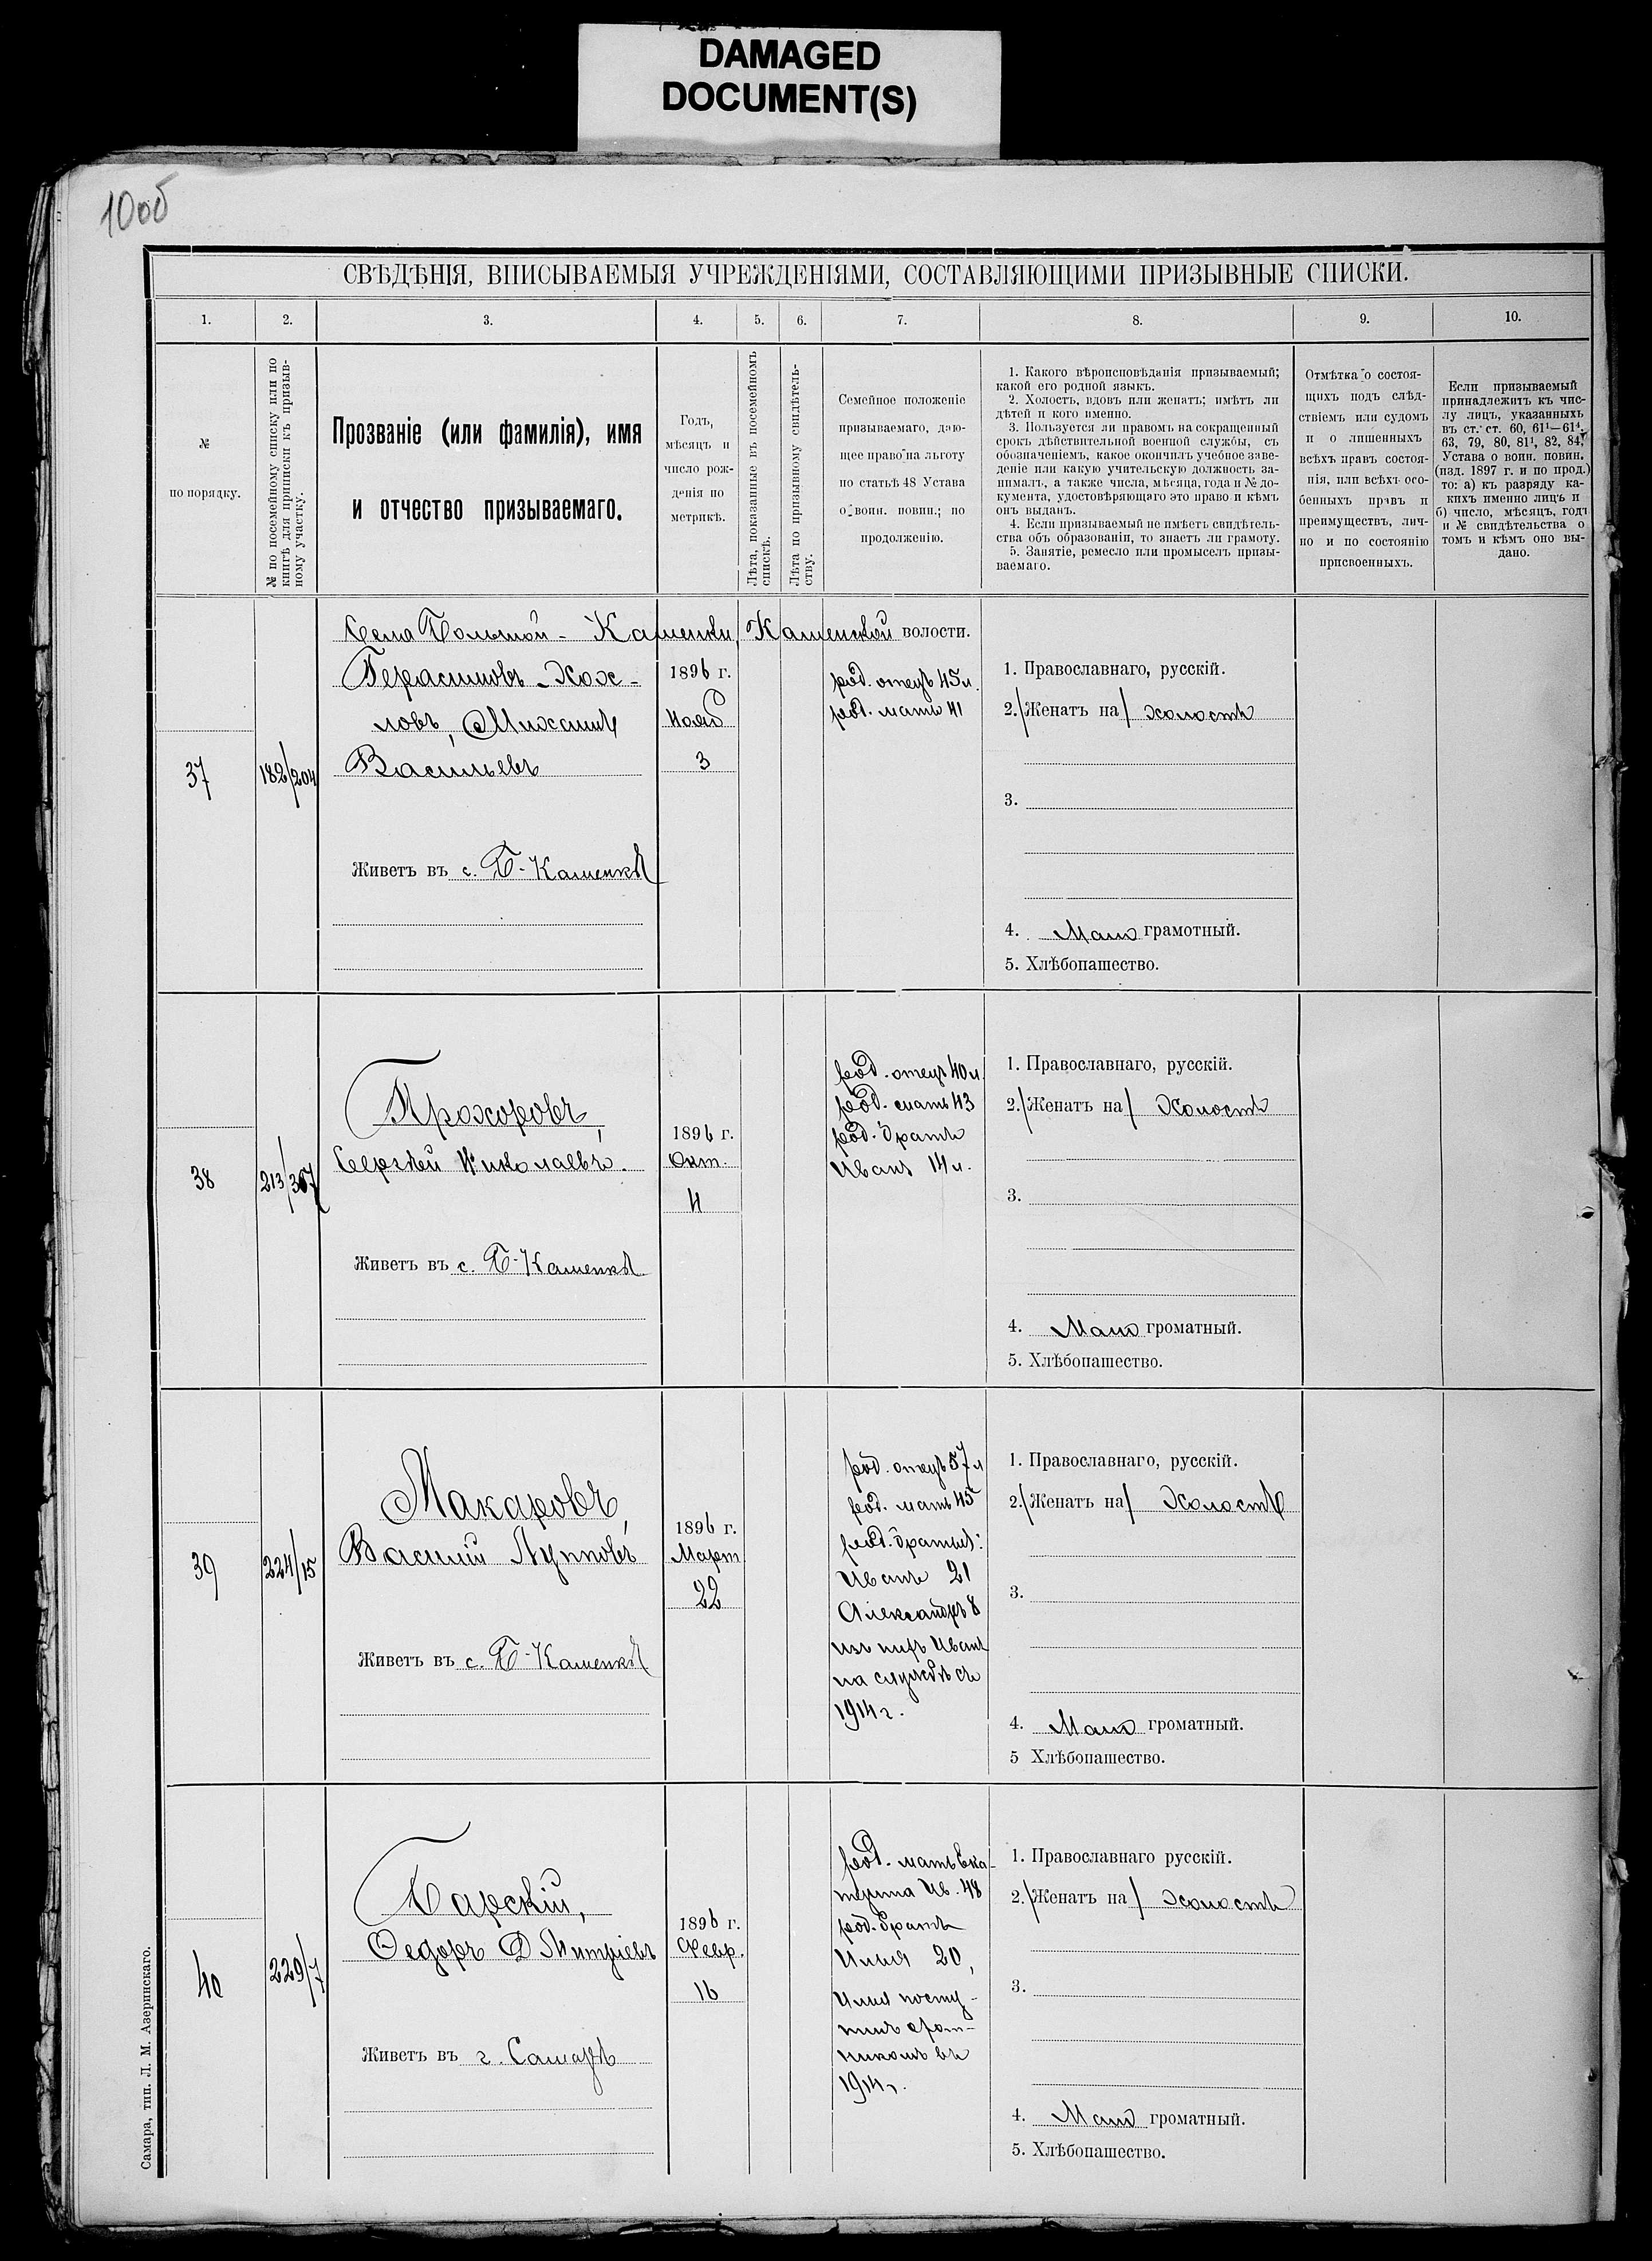 DAMAGED
DOCUMENT(S)
10об
СВѢДѢНІЯ, ВПИСЫВАЕМЫЯ УЧРЕЖДЕНІЯМИ, СОСТАВЛЯЮЩИМИ ПРИЗЫВНЫЕ СПИСКИ.
1.
2.
3.
4.
5.
6.
7.
8.
9.
10.
№
по порядку.
№ по посемейному списку или по
книгѣ для приписки къ призыв-
ному участку.
Прозваніе (или фамилія), имя
и отчество призываемаго.
Годъ,
мѣсяцъ и
число рож-
денія по
метрикѣ.
Лѣта, показанные въ посемейномъ
спискѣ.
Лѣта по призывному свидѣтель-
ству.
Семейное положеніе
призываемаго, даю-
щее право на льготу
по статьѣ 48 Устава
о воин. повин.; по
продолженію.
1. Какого вѣроисповѣданія призываемый;
какой его родной языкъ.
2. Холостъ, вдовъ или женатъ; имѣтъ ли
дѣтей и кого именно.
3. Пользуется ли правомъ на сокращенный
срокъ дѣйствительной военной службы, съ
обозначеніемъ, какое окончилъ учебное заве-
деніе или какую учительскую должность за-
нималъ, а также числа, мѣсяца, года и № до-
кумента, удостовѣряющаго это право и кѣмъ
онъ выданъ.
4. Если призываемый не имѣетъ свидѣтель-
ства объ образованіи, то знаетъ ли грамоту.
5. Занятіе, ремесло или промыселъ призы-
ваемаго.
Отмѣтка о состоя-
щихъ подъ слѣд-
ствіемъ или судомъ
и о лишенныхъ
всѣхъ правъ состоя-
нія, или всѣхъ осо-
бенныхъ правъ и
преимуществъ, лич-
но и по состоянію
присвоенныхъ.
Если призываемый
принадлежитъ къ чис-
лу лицъ, указанныхъ
въ ст. ст. 60, 61¹—61⁴,
63, 79, 80, 81¹, 82, 84,
Устава о воин. повин.
(изд. 1897 г. и по прод.)
то: а) къ разряду ка-
кихъ именно лицъ и
б) число, мѣсяцъ, годъ
и № свидѣтельства о
томъ и кѣмъ оно вы-
дано.
Села Большой-Каменки, Каменской волости.
37
182/204
Герасимовъ-Хох-
ловъ, Михаилъ
Васильевъ
Живетъ въ с. Б-Каменкѣ
1896 г.
Нояб
3
род. отецъ 45 л.
род. мать 41
1. Православнаго, русскій.
2. /Женатъ на/ холостъ
3.
4. Мало грамотный.
5. Хлѣбопашество.
38
213/307
Прохоровъ,
Сергѣй Николаевъ.
Живетъ въ с. Б-Каменкѣ
1896 г.
Окт.
4
род. отецъ 40 л.
род. мать 43
род. братъ
Иванъ 14 л.
1. Православнаго, русскій.
2. /Женатъ на/ Холостъ
3.
4. Мало громатный.
5. Хлѣбопашество.
39
224/15
Макаровъ,
Василій Лупповъ
Живетъ въ с. Б-Каменкѣ
1896 г.
Март
22
род. отецъ 57 л
род. мать 45
род. братья:
Иванъ 21
Александръ 8
изъ нихъ Иванъ
на службѣ съ
1914 г.
1. Православнаго, русскій.
2. /Женатъ на/ Холостъ
3.
4. Мало громатный.
5 Хлѣбопашество.
40
229/7
Барскій,
Ѳедоръ Дмитріевъ
Живетъ въ г. Самарѣ
1896 г.
Февр.
16
род. мать Ека-
терина Ив. 48
род. братъ
Илья 20,
Илья посту-
пилъ охот-
никомъ въ
1914 г.
1. Православнаго русскій.
2. /Женатъ на/ холостъ
3.
4. Мало громатный.
5. Хлѣбопашество.
Самара, тип. Л. М. Азеринскаго.